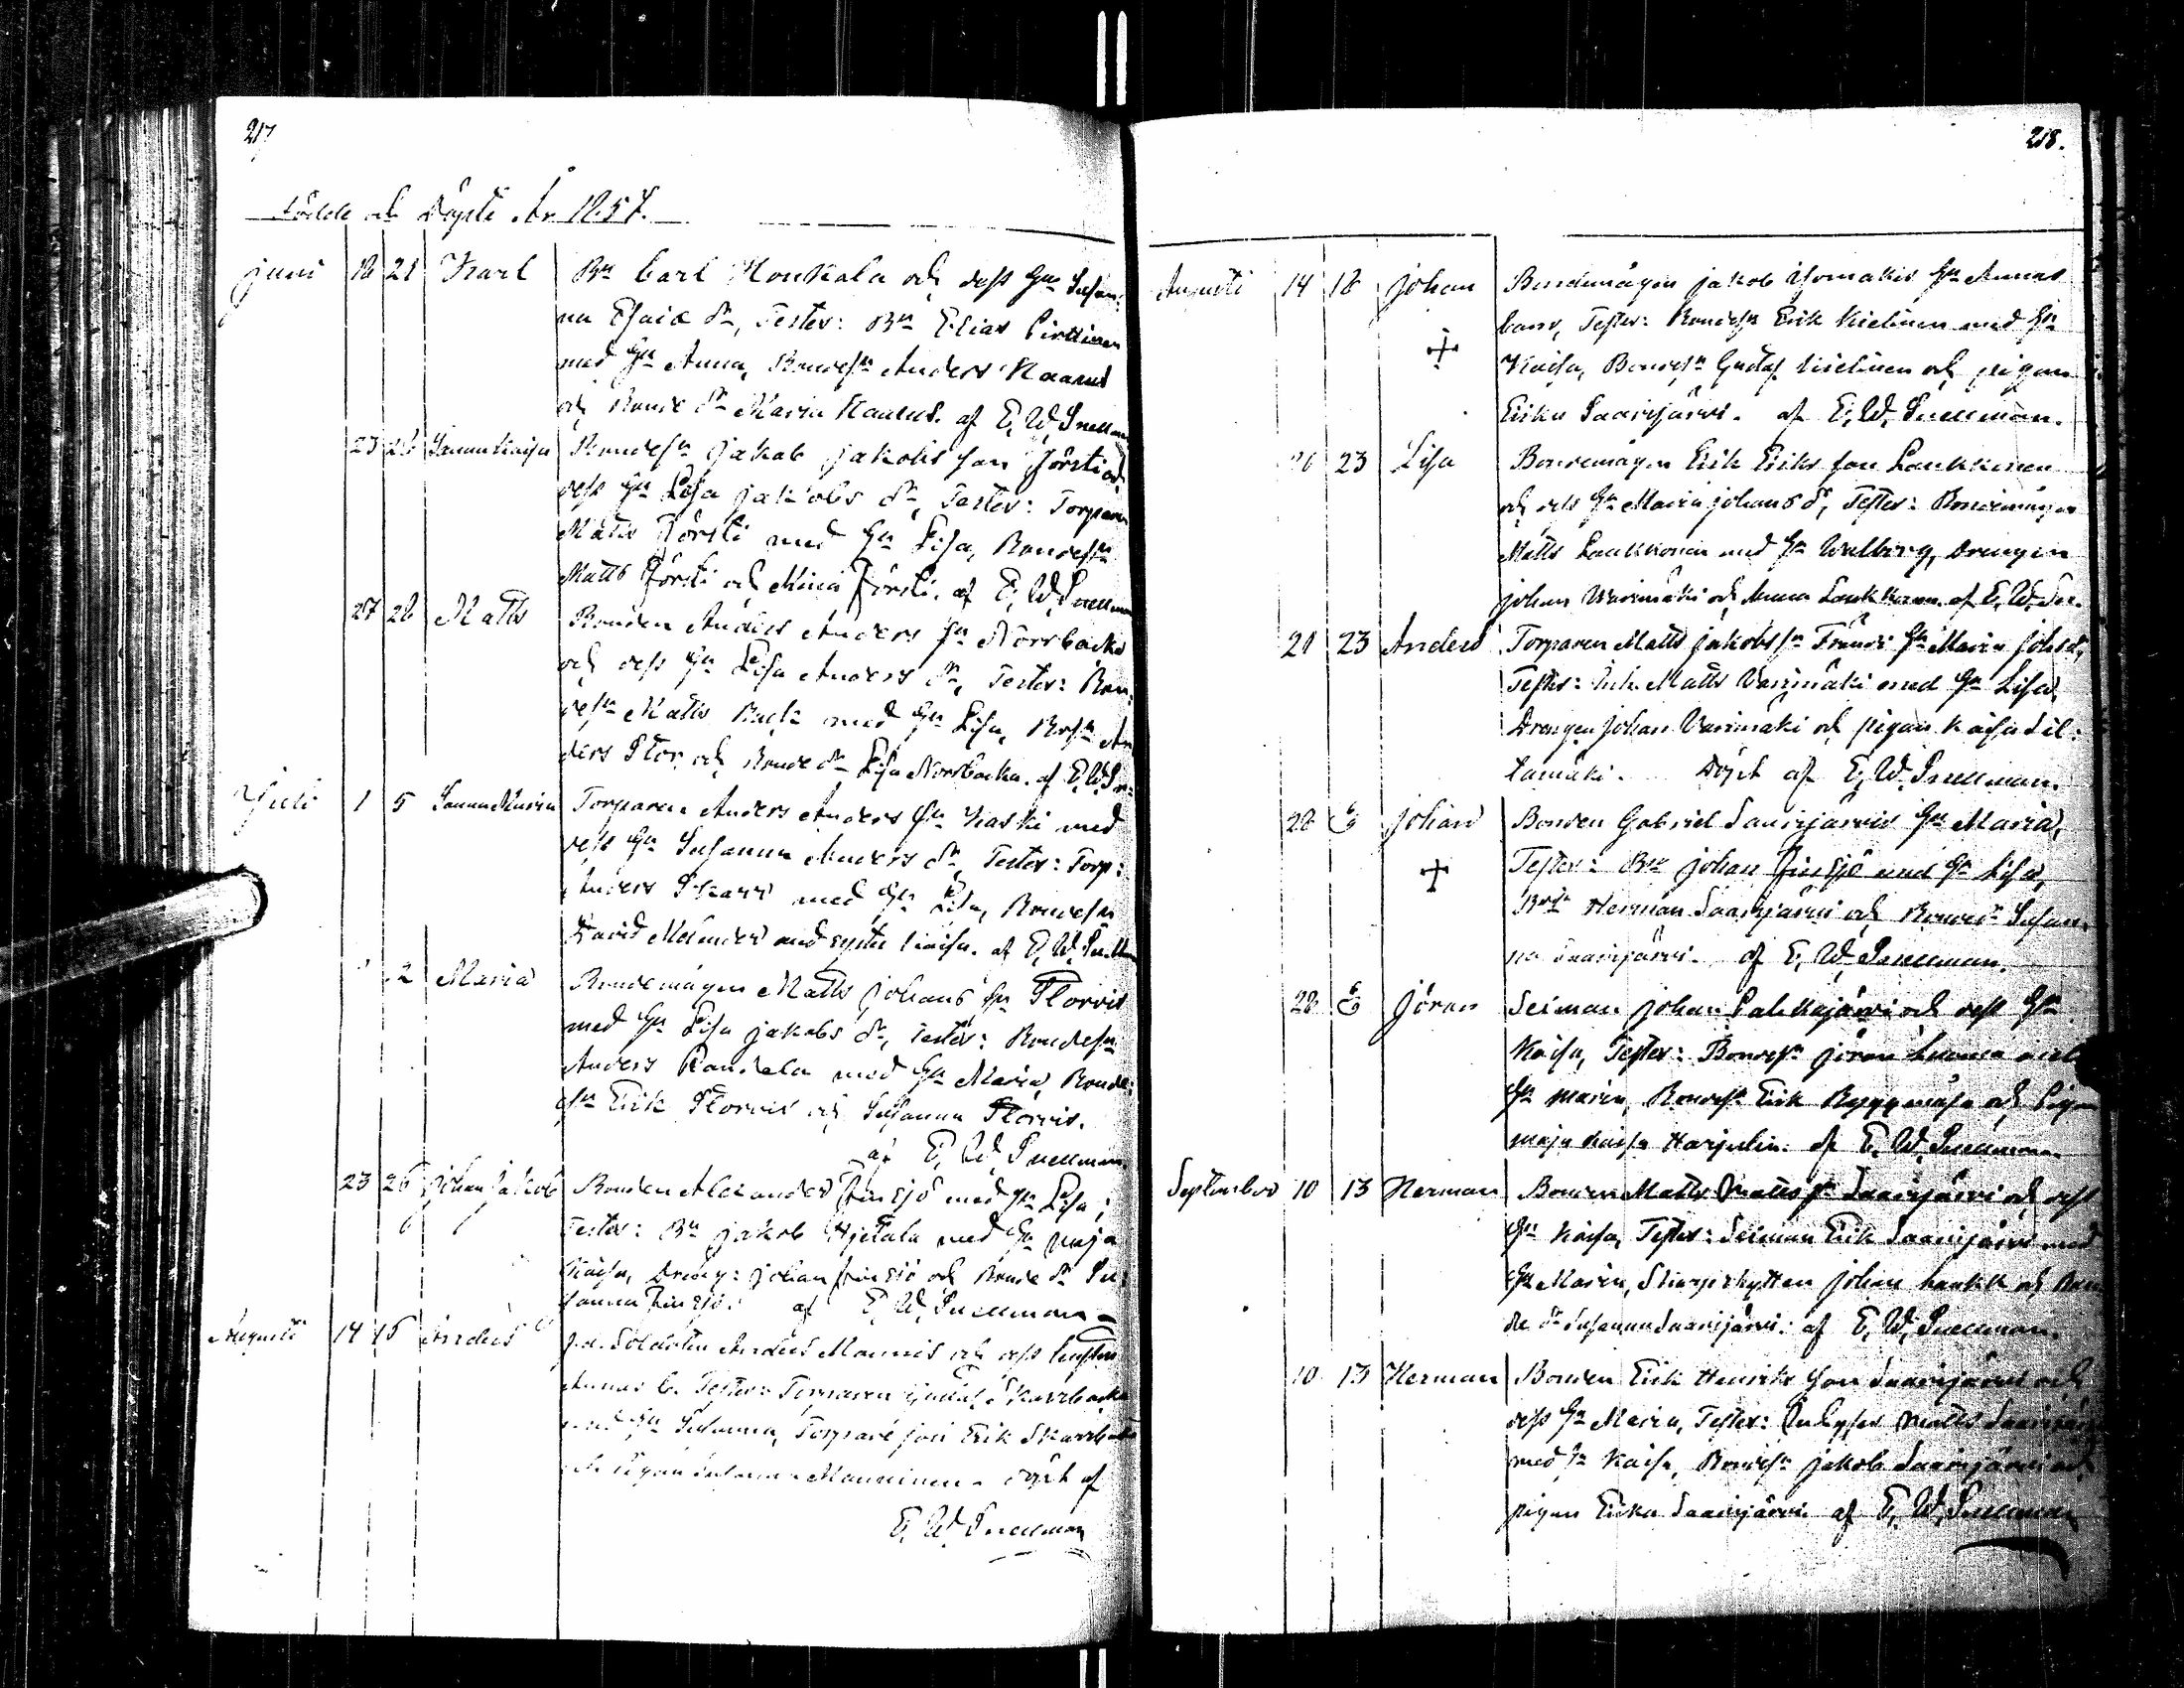 217
Födde och Döpte År 1857.
Juni 18 21 Karl Bn Carl Honkala och dess Hu Susan-
na Esaiæ dr, Testes: Bn Elias Pirttinen
med Hu Anna, Bondesn Anders Kaarus
och Bonde dr Maria Kaarus. af E. W. Snellman
23 28 Sanna Kaisa Bondesn Jakob Jakobs son Försti och
dess Hu Lisa Jakobs dr, Testes: Torparen
Matts Försti med Hu Lisa, Bondesn
Matts Försti och Mina Försti. af E. W. Snellman
27 28 Matts Bonden Anders Anders sn Norrbacka
och dess Hu Lisa Anders dr, Testes: Bon-
desn Matts Back med Hu Lisa, Bdsn An
ders Stor och Bonde dr Lisa Norrbacka. af E. W. Sn-
Juli 1 5 Sanna Maria Torparen Anders Anders sn Kaski med
dess Hu Susanna Anders dr, Testes: Torp:
Anders Skarr med Hu Lisa, Bondesn
David Melender med syster Kaisa. af E. W. Snellman
2 Maria Bondemågen Matts Johans sn Storvis
med Hu Lisa Jakobs dr, Testes: Bondesn
Anders Randala med Hu Maria, Bonde-
sn Erik Storvis och Susanna Storvis.
af E. W. Snellman.
23 26 Johan Jakob Bonden Alexander Finsjö med Hu Lisa;
Testes: Bn Jakob Hjetala med Hu Maja
Kaisa, Dreng: Johan Finsjö och Bonde dr Su-
sanna Finsjö. af E. W. Snellman
Augusti 14 15 Anders f.d. Soldaten Anders Mannis och dess hustru
Annas b. Testes: Torparen Gustaf Skarrbacka
med Hu Susanna, Torpare son Erik Skarrbacka
och Pigan Susanna Manninen. döpt af
E. W. Snellman
218.
Augusti 14 18 Johan Bondemågen Jakob Isomäkis Hu Annas
barn, Testes: Bondesn Erik Kielinen med Hu
Kaisa, Bondesn Gustaf Kielinen och pigan
Erika Saarijärvi. af E. W. Snellman.
20 23 Lisa Bondemågen Erik Eriks son Laukkonen
och dess Hu Maria Johans dr, Testes: Bondemågen
Matts Laukkonen med Hu Walborg, Drengen
Johan Warimäki och Anna Laukkonen. af E. W. Sn.
21 23 Anders Torparen Matts Jakobs sn Fränti Hu Maria Johsdr,
Testes: Inh. Matts Varimäki med Hu Lisa,
Drengen Johan Varimäki och pigan Kaisa Sil-
lamäki. Döpt af E. W. Snellman.
28 Johan Bonden Gabriel Saarijärvis Hu Maria,
Testes: Bn Johan Finsjö med Hu Lisa,
Bdsn Herman Saarijärvi och Bonde dr Susan-
na Saarijärvi. af E. W. Snellman.
28 Jöran Seiman Johan Palckajärvi och dess Hu
Kaisa, Testes: Bondesn Jöran Luoma med
Hu Maria, Bondesn Erik Ryggmåsa och Pigan
Maja Kaisa Harjulin. af E. W. Snellman
September 10 13 Herman Bonden Matts Matts sn Saarijärvi och dess
Hu Kaisa, Testes: Seiman Erik Saarijärvi med
Hu Maria, Skarpskytten Johan Kaukk och Bon
de dr Susanna Saarijärvi: af E. W. Snellman.
10 13 Herman Bonden Erik Henriks son Saarijärvi och
dess Hu Maria, Testes: Inhyses Matts Saarijärvi
med Hu Kaisa, Bondesn Jakob Saarijärvi och
pigan Erika Saarijärvi af E. W. Snellman